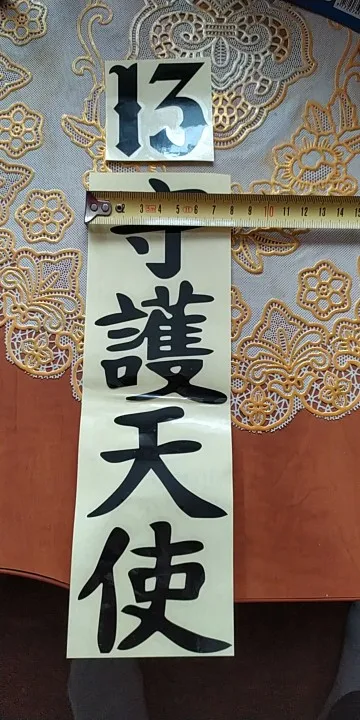 13
守
護
天
使
2 3 4 5 6 7 8 9 10 11 12 13 14